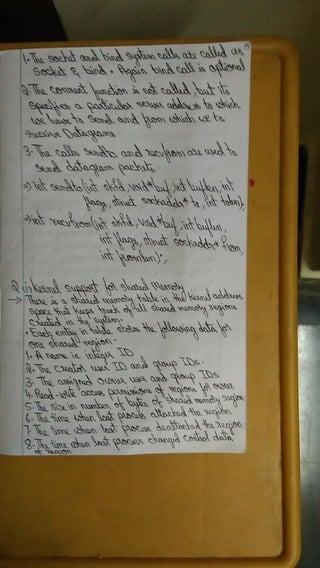 1. The socket and bind system calls are called as
socket & bind. Again bind call is optional
2. The connect function is not called, but its
specifies a particular server address to which
we have to send and from which we to
receive Datagrams
3. The calls sendto and recvfrom are used to
send datagram packets.
=> int sendto(int skfd, void *buf, int buflen, int
flags, struct sockaddr* to, int tolen);
=> int recvfrom(int skfd, void *buf, int buflen,
int flags, struct sockaddr* from,
int fromlen);
Q (i) Kernel support for shared memory
→ There is a shared memory table in the kernel address
space that keeps track of all shared memory regions
created in the system.
• Each entry in table stores the following data for
one shared region-
1. A name ie integer ID
2. The creator user ID and group IDs.
3. The assigned owner user and group IDs
4. Read-write access permissions of regions for owner
5. The size in number of bytes of shared memory region
6. The time when last process attached the region
7. The time when last process deattached the region
8. The time when last process changed control data
of region